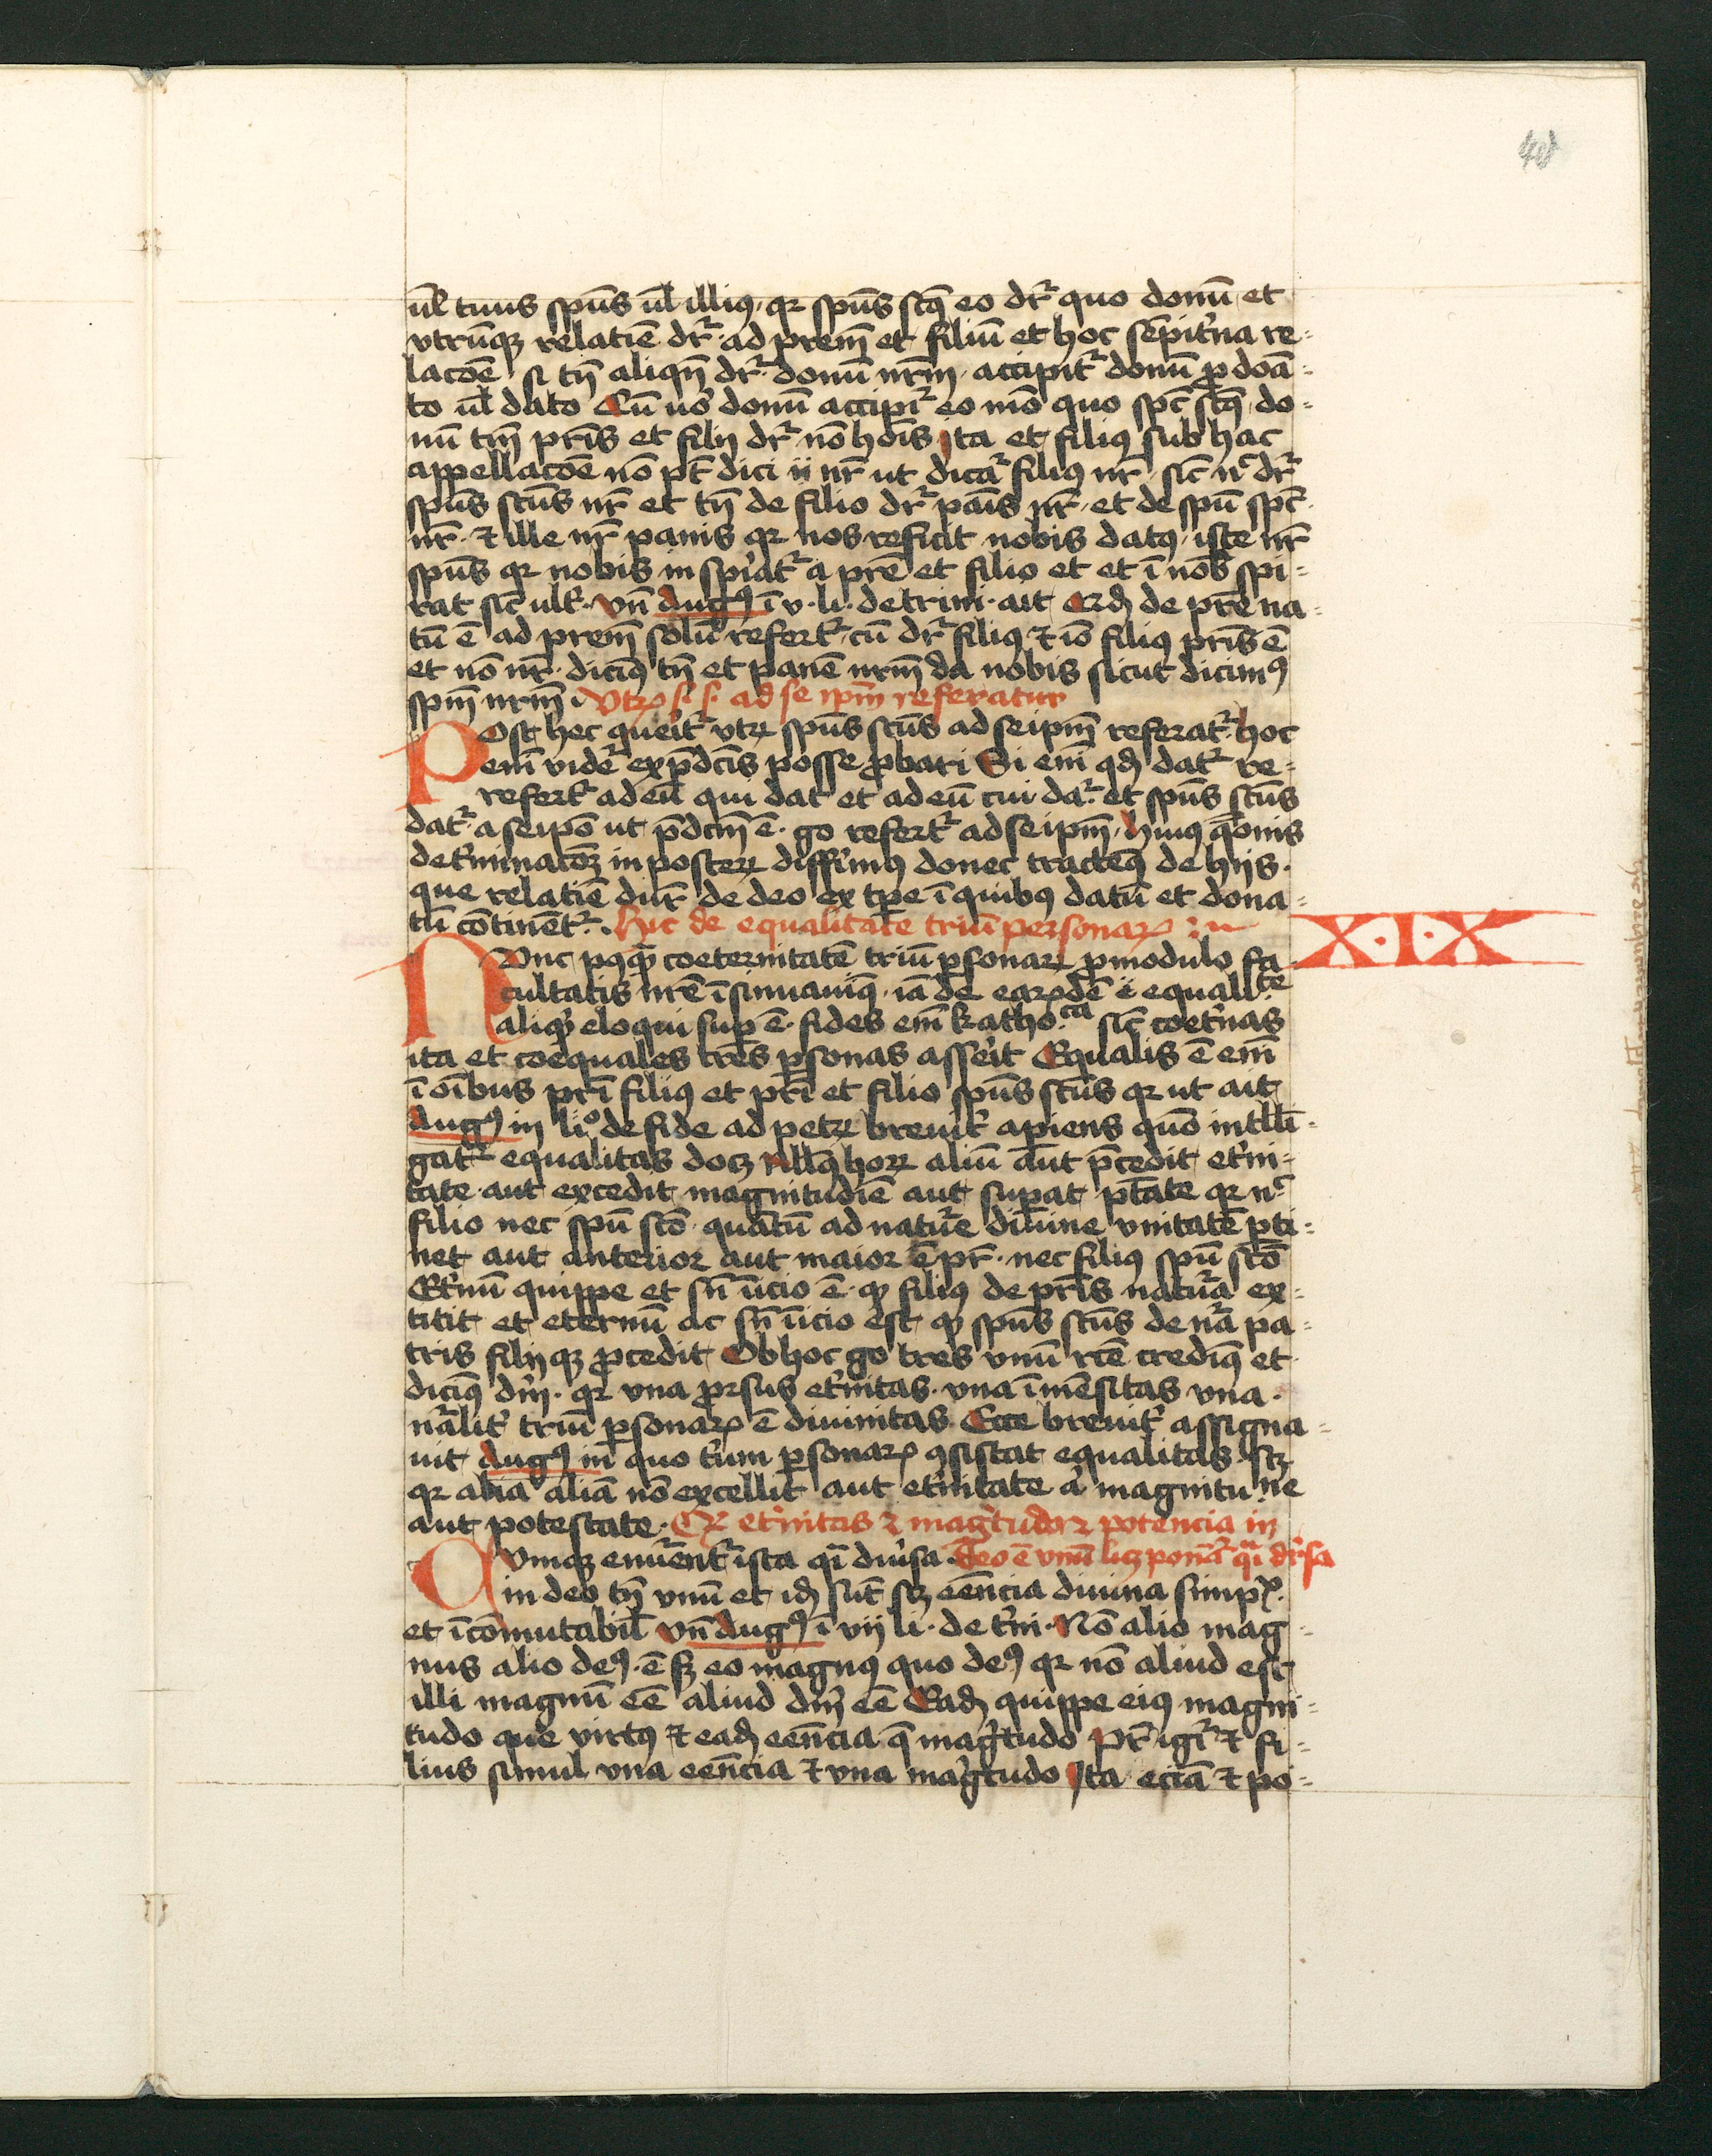 ul̄ tuus spūs ul̄ illiꝰ qꝛ spūs scꝰ eo dr̄ quo donū et
vtrūqꝫ relatiē dr̄ ad prem̄ et filiū et hoc sēpit̾na re=
lacōe si tn̄ aliqn̄ dr̄ donū nrm̄ accipit᷑ donū ꝓ doā=
to ul̄ dato Cū uo̾ donū accipit᷑ eo mō quo spc̄ scꝰ do=
nū tm̄ pris̄ et filij dr̄ nō hoīs Ita et filiꝰ sub hac
appellacōe nō pt̄ dici nr̄ ut dicat᷑ filiꝰ nr̄ sic̄ nc̄ dr̄
spūs scūs nr̄ et tn̄ de filio dr̄ pāis nr̄ et de spū spc̄
nr̄ ⁊ ille nr̄ panis qꝛ nos reficit nobis datꝰ iste nr̄
spūs qꝛ nobis inspirat᷑ a prē et filio et et ī nob̄ spi=
rat sic̄ ult̾ vn̄ Augꝰ ī v li de trini ait Qd̄ de prē na=
tū ē ad prem̄ solū refert᷑ cū dr̄ filiꝰ ⁊ iō filiꝰ pris̄ ē
et nō nr̄ dicimꝰ tn̄ et panē nrm̄ da nobis sicut dicimꝰ
spm̄ nrm̄ Vtꝝ s s ad se ipm̄ referatur
Post hec querit᷑ vtꝝ spūs scūs ad seipm̄ referat᷑ hoc
em̄ videt᷑ ex p̄dcis̄ posse ꝓbari Si em̄ qd̄ dat᷑ re=
refert᷑ ad eū qui dat et ad eū cui dat᷑ et spūs scūs
dat᷑ a seipō ut p̄dcm̄ ē go refert᷑ ad seipm̄ huiꝰ q̄onis
det̾minacōeꝫ in posteꝝ differimꝰ donec tractemꝰ de hijs
que relatiē dnr̄ de deo ex tpe ī quibꝰ datū et dona=
tū cōtinent᷑ Hic de equalitate triū personaꝝ
XIX
Nunc pꝰqꝫ coeternitatē triū ꝑsonaꝝ ꝓ modulo fa
cultatis nrē īsinuauimꝰ iā de eaꝝdē equalitate
aliqͥd eloqui suꝑ ē fides em̄ katholica sic̄ coet̾nas
ita et coequales tres ꝑsonas asserit Equalis ē em̄
ī oībus prī filiꝰ et prī et filio spūs scūs qꝛ ut ait
Augꝰ in lio de fide ad petꝝ breuit̾ apiens quō intlli=
gat᷑ equalitas docꝫ nullꝰ hoꝝ aliū aut p̄cedit et̾ni=
tate aut excedit magnitudīe aut suꝑat ptāte qꝛ nc̄
filio nec spū scō quātū ad nature diuine vnitatē ꝑti=
net aut anterior aut maior ē pr̄ nec filiꝰ spū scō
Et̾nū quippe et sn̄ inicio ē qꝫ filiꝰ de pris̄ natura ex=
titit et eternū ac sn̄ inicio est qꝫ spūs scūs de nr̄a pa=
tris filijqꝫ ꝓcedit Ob hoc go tres vnū rcē credimꝰ et
dicimꝰ dm̄ qꝛ vna ꝓrsus et̾nitas vna īmēsitas vna
nāliter triū ꝑsonaꝝ ē diuinitas Ecce breuit̾ assigna=
uit Augꝰ in quo trium ꝑsonaꝝ ꝯsistat equalitas scꝫ
qꝛ alia aliā nō excellit aut et̾nitate a̾ magnitudine
aut potestate Qꝛ et̾nitas ⁊ magͥtudo ⁊ potencia in
Cumqꝫ enumerent᷑ ista qͣi diu̾sa deo ē vnū licꝫ ponāt᷑ qͣi diu̾sa
in deo tn̄ vnū et id̄ sūt scꝫ eēncia diuina simpx
et īcōmutabil̄ vn̄ Augꝰ ī vij li de t̾ni Nō alio mag=
nus alio deꝰ ē sꝫ eo magnꝰ quo deꝰ qꝛ nō aliud est
illi magnū eē aliud dm̄ eē Ead̄ quippe eiꝰ magni=
tudo que virtꝰ ⁊ ead̄ eēncia q̄ magͥtudo Pr̄ igr̄ ⁊ fi=
lius simul vna eēncia ⁊ vna magͥtudo Ita eciā ⁊ po=